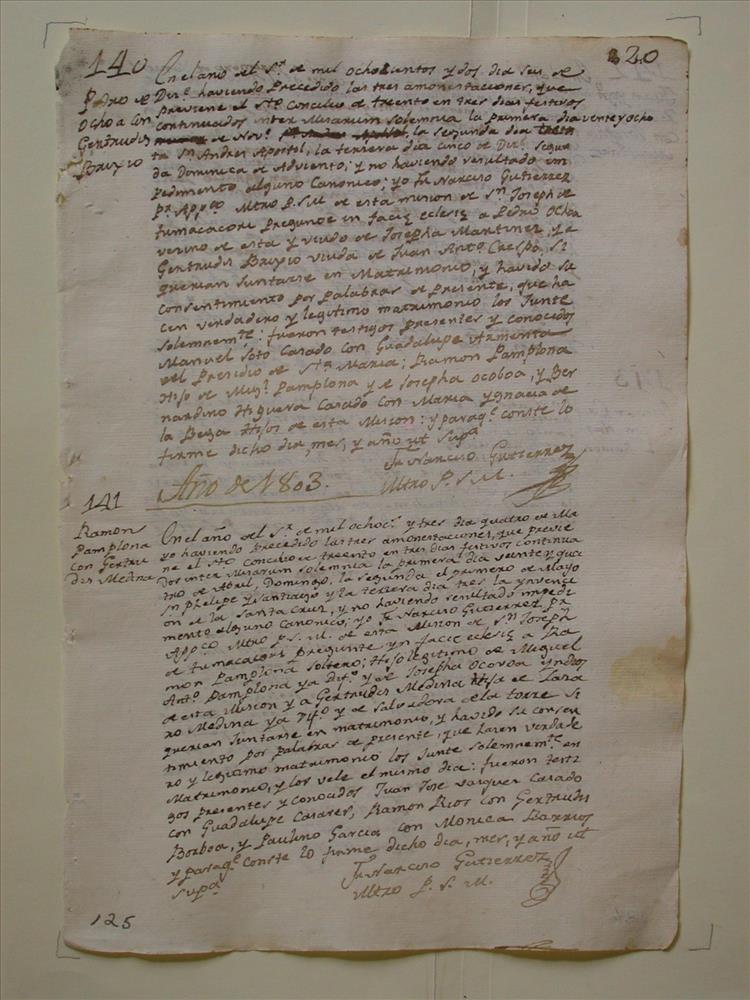 140
320
Pedro de
Ochoa con
Gertrudis
Brixio
En el año del Sr. de mil ochocientos y dos dia seis de
Dizᵉ haviendo precedido las tres amonestaciones, que
previene el Stº Concilio de trento en tres dias festivos
continuados inter Missarum solemnia la primera dia veinte y ocho
de Novᵉ la segunda dia
ta Sⁿ Andres Apostol, la tersera dia cinco de Dizᵉ Segun
da Dominica de Adviento; y no haviendo resultado im
pedimento alguno Canonico; yo Fr Narciso Gutierrez
Pr. Appcº Mtro P. S. M. de esta mision de Sⁿ Joseph de
tumacacori pregunté in facie eclesie a Pedro Ochoa
vecino de esta y viudo de Josepha Martinez, y a
Gertrudis Brixio viuda de Juan Antº Crespo, si
querian juntarse en Matrimonio, y havido su
consentimiento por palabras de presente, que ha
cen verdadero y legitimo matrimonio los junte
solemnemᵗᵉ: fueron testigos presentes y conocidos
Manuel Soto Casado con Guadalupe Armenta
del Presidio de Sta Maria; Ramon Pamplona
Hijo de Migˡ Pamplona y de Josepha Ocoboa, y Ber
nardino Higuera Casado con Maria Ygnacia de
la Beza Hijos de esta Mision: y paraqᵉ conste lo
firme dicho dia, mes, y año ut supª
Fr Narciso Gutierrez
Mtro P. S. M.
Año de 1803.
141
Ramon
Pamplona
con Gertru
dis Medina
En el año del Sr. de mil ochocˢ y tres dia quatro de Ma
yo haviendo precedido las tres amonestaciones, que previe
ne el Stº Concilio de treento en tres dias festivos continua
dos inter Missarum solemnia la primera dia veinte y qua
tro de Abril, Domingo, la segunda el primero de Mayo
Sⁿ Phelipe y Santiago y la tersera dia tres la ynvenci
on de la Santa Cruz, y no haviendo resultado impedi
mento alguno canonico; yo Fr Narciso Gutierrez Pr.
Appcº Mtro P. S. M. de esta Mision de Sⁿ Joseph
de tumacacori pregunte yn facie eclesie a Ra
mon Pamplona soltero; Hijo legitimo de Miguel
Antº Pamplona ya Difº y de Josepha Ocoboa yndios
de esta Mision y a Gertrudis Medina Hija de Laza
ro Medina ya Difº y de Salvadora de la torre si
querian juntarse en matrimonio, y havido su consen
timiento por palabras de presente, que hacen verdade
ro y legitimo matrimonio los junte solemnemᵗᵉ en
Matrimonio, y los vele el mismo dia: fueron testi
gos presentes y conocidos Juan Jose vasquez Casado
con Guadalupe Casares, Ramon Rios con Gertrudis
Borboa, y Paulino Garcia con Monica Barrios
y paraqᵉ conste lo firme dicho dia, mes, y año ut
supª
Fr Narciso Gutierrez
Mtro P. S. M.
125